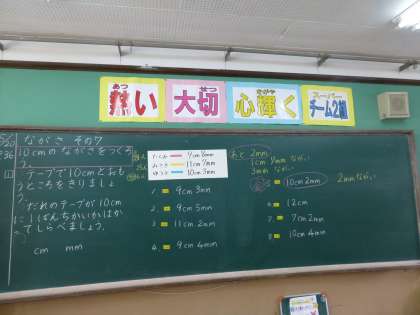 あつ
熱い
たいせつ
大切
心輝く
スーパー
チーム2組
ながさ その7
10cmのながさをつくろ
う。
テープで10cmとおも
うところをきりましょ
う。
だれのテープが10cm
にいちばんちかいかしら
べましょう。
cm mm
9cm8mm
11cm7mm
10cm5mm
あと 2mm
1cm 7mm ながい
5mm ながい
1. 9cm 3mm
2. 9cm 5mm
3. 11cm 2mm
4. 9cm 4mm
5. 10cm 2mm
2mm ながい
6. 12cm
7. 7cm 2mm
8. 10cm 4mm